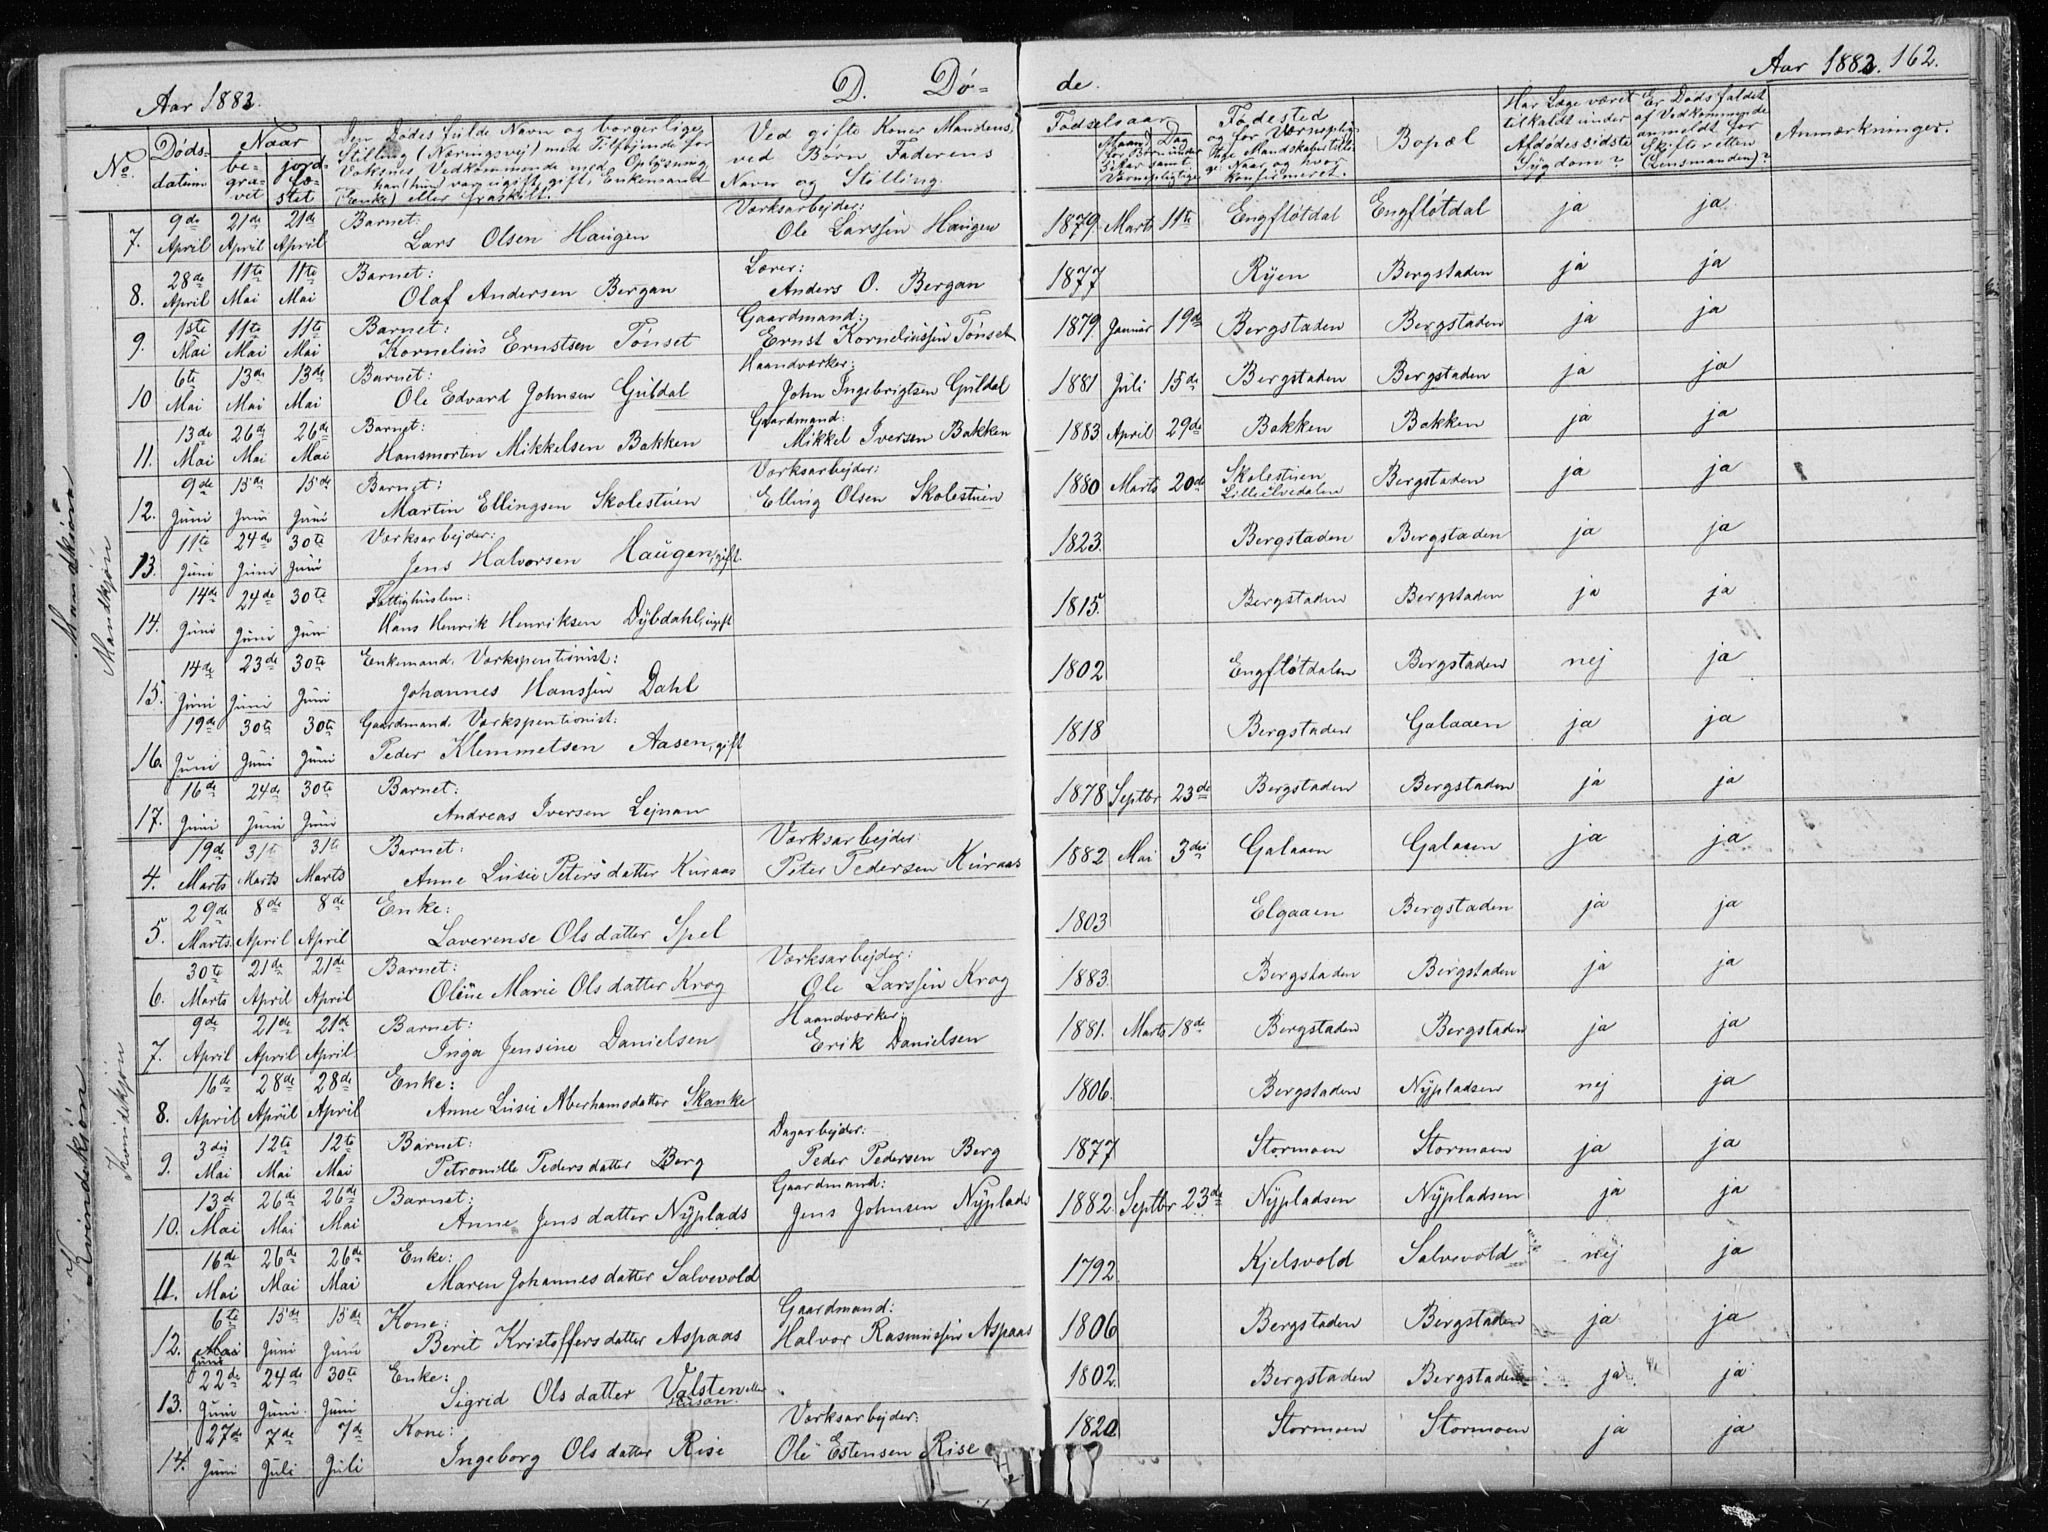 Aar 1883. D. Dø- de. Aar 1883. 162.
No. Døds-datum Naar be-gra-vet jord-fæ-stet Den Dødes fulde Navn og borgerlige Stilling (Næringsvej) med Tilføjende for Voksnes Vedkommende med Oplysning han (hun) var ugift, gift, Enkemand (Enke) eller fraskilt. Ved gifte Koner Mandens, ved Børn Faderens Navn og Stilling. Fødselsaar Maaned Dag for Børn under samt Værnepligtige Fødested og for Værneplig- Bopæl Har Læge været tilkaldt under Afdødes sidste Sygdom? Er Dødsfaldet af Vedkommende anmeldt for Skifteretten (Lensmanden)? Anmærkninger.
Mandkjøn
Mandkjøn
7. 9de April 21de April 21de April Barnet: Lars Olsen Haugen Værksarbejder: Ole Larssen Haugen 1879 Marts 11te Engfløtdal Engfløtdal ja ja
8. 28de April 11te Mai 11te Mai Barnet: Olaf Andersen Bergan Lærer: Anders O. Bergan 1877 Ryen Bergstaden ja ja
9. 1ste Mai 11te Mai 11te Mai Barnet: Kornelius Ernstsen Tønset Gaardmand: Ernst Korneliussen Tønset 1879 Januar 19de Bergstaden Bergstaden ja ja
10 6te Mai 13de Mai 13de Mai Barnet: Ole Edvard Johnsen Guldal Haandværker: John Ingebrigtsen Guldal 1881 Juli 15de Bergstaden Bergstaden ja ja
11. 13de Mai 26de Mai 26de Mai Barnet: Hansmorten Mikkelsen Bakken Gaardmand: Mikkel Iversen Bakken 1883 April 29de Bakken Bakken ja ja
12. 9de Juni 15de Juni 15de Juni Barnet: Martin Ellingsen Skolestuen Værksarbejder: Elling Olsen Skolestuen 1880 Marts 20de Skolestuen Lilleelvedalen Bergstaden ja ja
13. 11te Juni 24de Juni 30te Juni Værksarbejder: Jens Halvorsen Haugen, gift. 1823. Bergstaden Bergstaden ja ja
14. 14de Juni 24de Juni 30te Juni Fattighuslem: Hans Henrik Henriksen Dybdahl, ugift 1815. Bergstaden Bergstaden ja ja
15. 14de Juni 23de Juni 30te Juni Enkemand. Værkspentionist: Johannes Hanssen Dahl 1802 Engfløtdalen Bergstaden nej ja
16. 19de Juni 30te Juni 30te Juni Gaardmand. Værkspentionist: Peder Klemmetsen Aasen, gift 1818 Bergstaden Galaaen ja ja
17. 16de Juni 24de Juni 30te Juni Barnet: Andreas Iversen Lejnan 1878 Septbr 23de Bergstaden Bergstaden ja ja
Kvindekjøn
Kvindekjøn
4. 19de Marts 31te Marts 31te Marts Barnet: Anne Lusie Petersdatter Kuraas Værksarbejder: Peter Pedersen Kuraas 1882 Mai 3die Galaaen Galaaen ja ja
5. 29de Marts. 8de April 8de April Enke: Laverense Olsdatter Spel 1803 Elgaaen Bergstaden ja ja
6. 30te Marts 21de April 21de April Barnet: Oline Marie Olsdatter Krog Værksarbejder: Ole Larssen Krog 1883. Bergstaden Bergstaden ja ja
7. 9de April 21de April 21de April Barnet: Inga Jensine Danielsen Haandværker: Erik Danielsen 1881. Marts 18de Bergstaden Bergstaden ja ja
8. 16de April 28de April 28de April Enke: Anne Lusie Aberhamsdatter Skanke 1806. Bergstaden Nypladsen nej ja
9. 3die Mai 12te Mai 12te Mai Barnet: Petronille Pedersdatter Berg Dagarbejder: Peder Pedersen Berg 1877 Stormoen Stormoen ja ja
10. 13de Mai 26de Mai 26de Mai Barnet: Anne Jensdatter Nyplads Gaardmand: Jens Johnsen Nyplads 1882 Septbr 23de Nypladsen Nypladsen ja ja
11. 16de Mai 26de Mai 26de Mai Enke: Maren Johannesdatter Salvevold 1792 Kjelsvold Salvevold nej ja
12. 6te Mai Juni 15de Juni 15de Juni Kone: Berit Kristoffersdatter Aspaas Gaardmand: Halvor Rasmussen Aspaas 1806 Bergstaden Bergstaden ja ja
13. 22de Juni 24de Juni. 30te Juni Enke: Sigrid Olsdatter Valsten eller 1802. Bergstaden Bergstaden ja ja
14. 27de Juni 7de Juli 7de Juli Kone: Ingeborg Olsdatter Rise Værksarbejder: Ole Estensen Rise 1820 Stormoen Stormoen ja ja